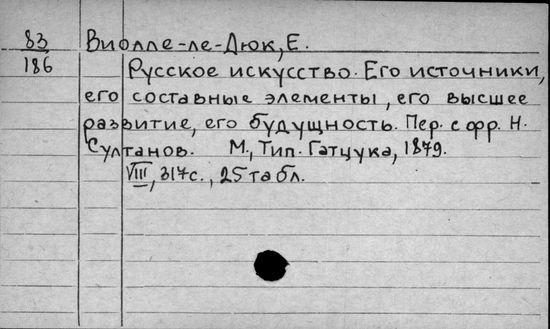 83 Виолле-ле-Дюк, Е.
186 Русское искусство. Его источники,
его составные элементы, его высшее
развитие, его будущность. Пер. с фр. Н.
Султанов. М., Тип. Гатцука, 1879.
VIII, 317с., 25 табл.